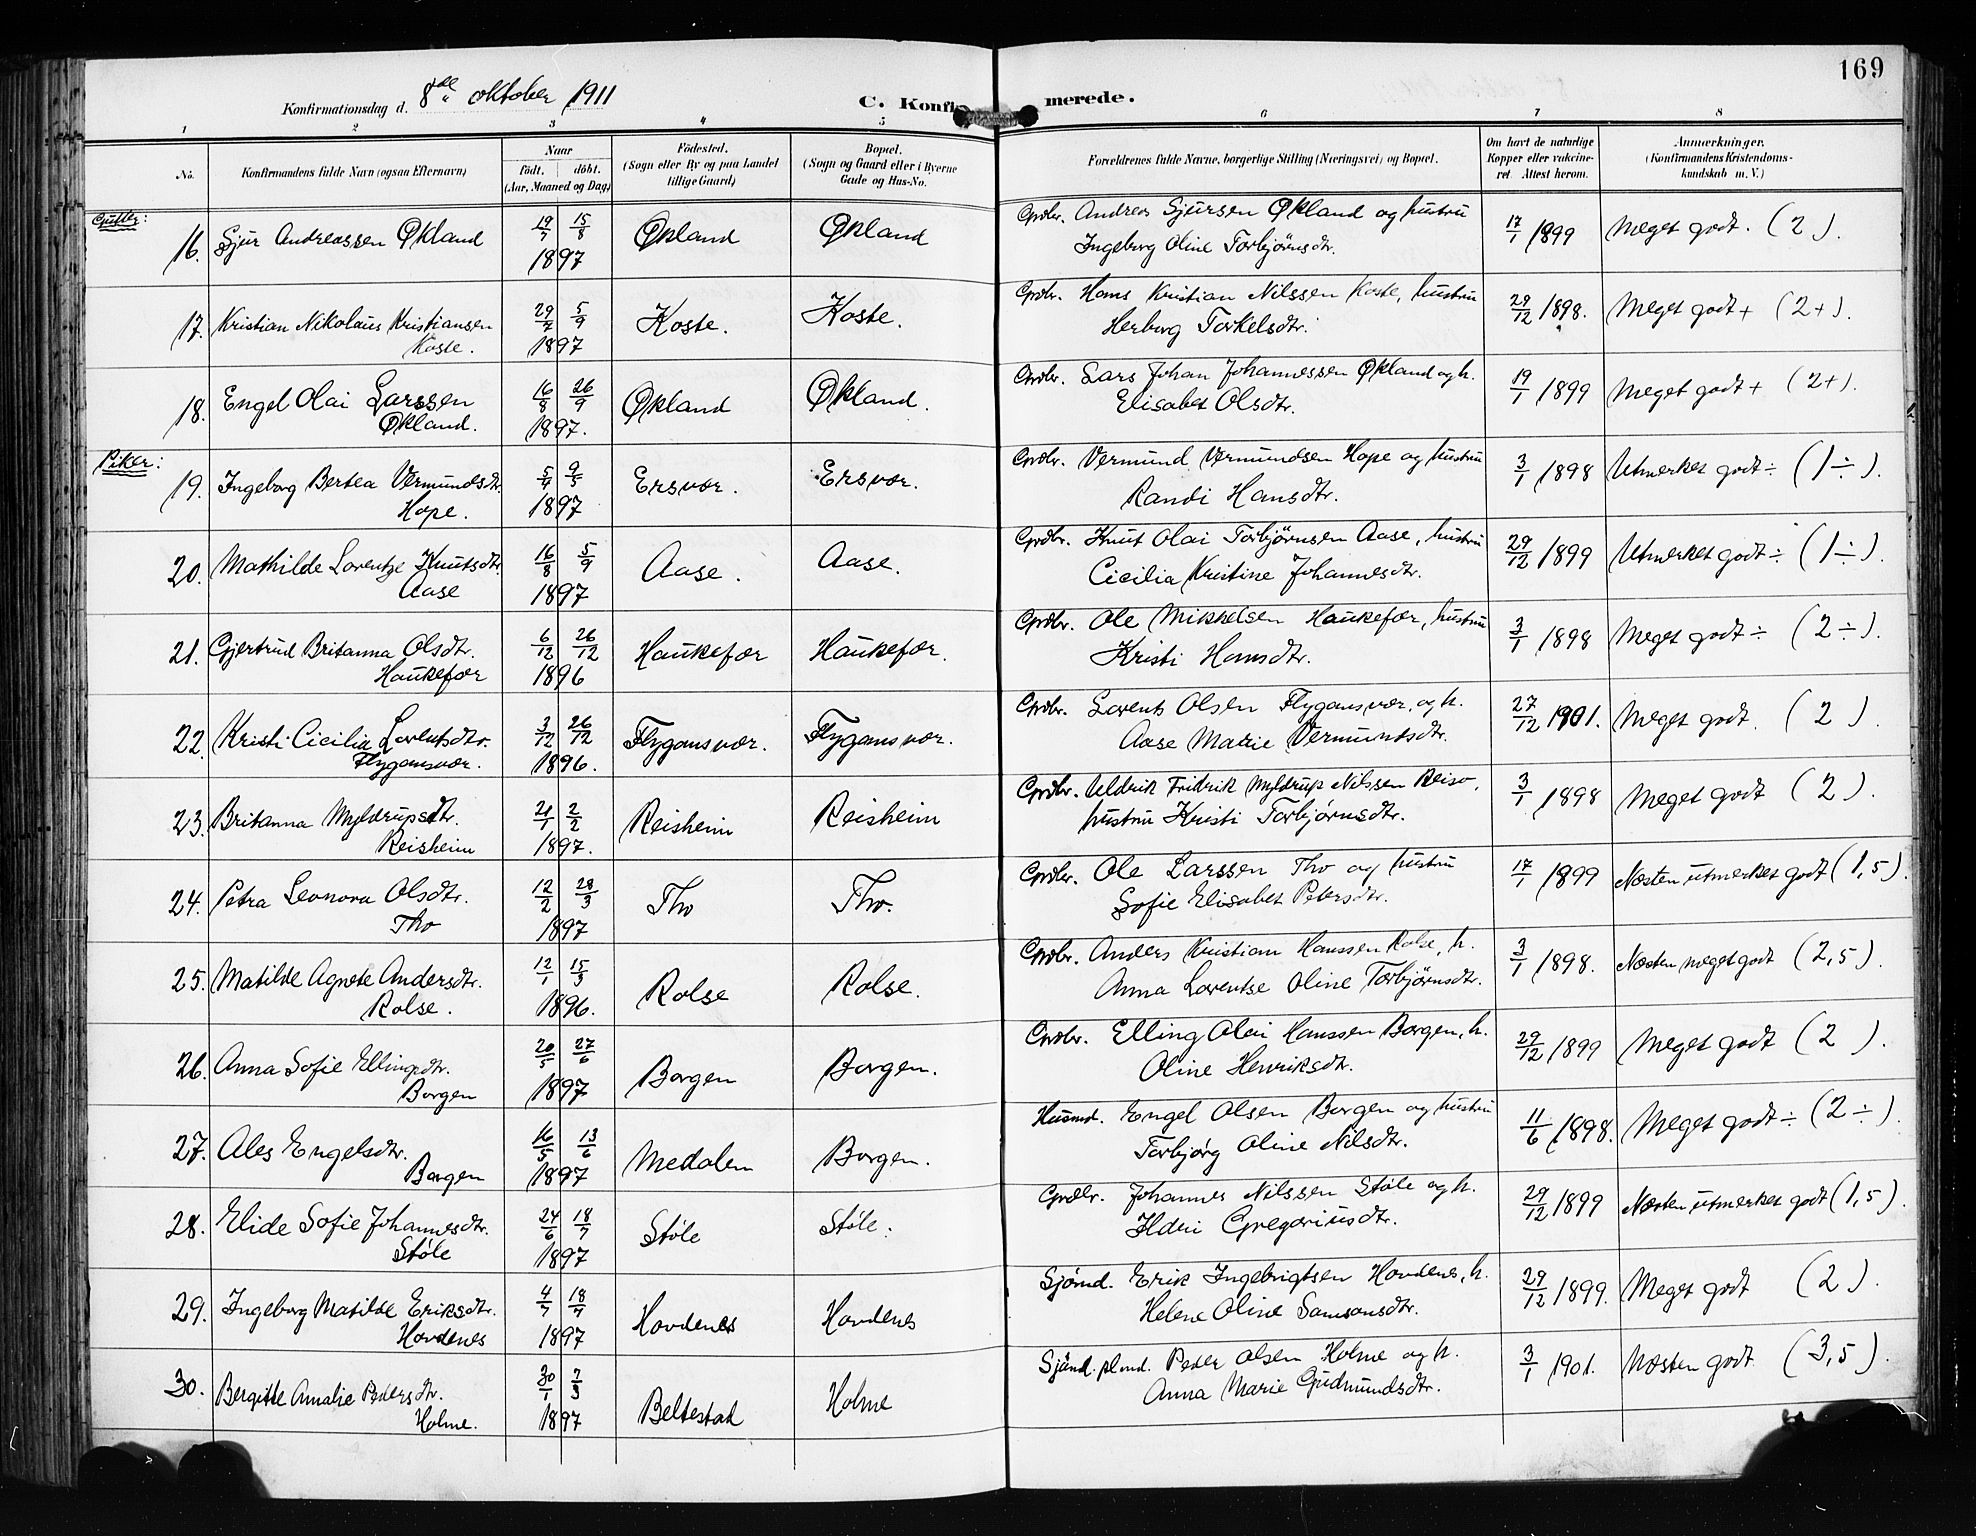 169
Konfirmationsdag d. 8de oktober 1911
C. Konfirmerede.
1 2 3 4 5 6 7 8
No. Konfirmandens fulde Navn (ogsaa Efternavn) Naar födt. döbt. (Aar, Maaned og Dag) Födested. (Sogn eller By og paa Landet tillige Gaard) Bopæl. (Sogn og Gaard eller i Byerne Gade og Hus-No. Forældrenes fulde Navne, borgerlige Stilling (Næringsvei) og Bopæl. Om havt de naturlige Kopper eller vakcineret. Attest herom. Anmærkninger. (Konfirmandens Kristendomskundskab m. V.)
Gutter:
16. Sjur Andreassen Økland 19/7 15/8 1897 Økland Økland Grdbr. Andreas Sjursen Økland og hustru 17/1 1899 Meget godt. (2).
Ingeborg Oline Torbjørnsdtr.
17. Kristian Nikolaus Kristiansen 29/7 5/9 1897 Koste. Koste. Grdbr. Hans Kristian Nilssen Koste, hustru 29/12 1898. Meget godt + (2+).
Koste. Herborg Torkelsdtr.
18. Engel Olai Larssen 16/8 26/9 1897. Økland Økland. Grdbr. Lars Johan Johannessen Økland og h. 19/1 1899 Meget godt + (2+).
Økland. Elisabet Olsdtr.
Piker:
19. Ingeborg Bertea Vermundsdtr. 1897 Ersvær. Ersvær. Grdbr. Vermund Vermundsen Hope og hustru 3/1 1898 Utmerket godt ÷ (1÷).
Hope. Randi Hansdtr.
20. Mathilde Lorentze Knutsdtr. 16/8 5/9 1897 Aase. Aase. Grdbr. Knut Olai Torbjørnsen Aase, hustru 29/12 1899 Utmerket godt ÷ (1÷).
Aase Cicilia Kristine Johannesdtr.
21. Gjertrud Britanna Olsdtr. 6/12 26/12 1896 Haukefær Haukefær. Grdbr. Ole Mikkelsen Haukefær, hustru 3/1 1898 Meget godt ÷ (2÷).
Haukefær Kristi Hansdtr.
22. Kristi Cicilia Lorentsdtr. 3/12 26/12 1896. Flygansvær. Flygansvær. Grdbr. Lorents Olsen Flygansvær, og h. 27/12 1901. Meget godt. (2).
Flygansvær. Aase Marie Vermundsdtr.
23. Britanna Myldrupsdtr. 2/2 1897. Reisheim Reisheim Grdbr. Uldrik Fridrik Myldrup Nilssen Reisø, 3/1 1898 Meget godt (2).
Reisheim hustru Kristi Torbjørnsdtr.
24. Petra Leonora Olsdtr. 12/2 28/3 1897 Tho Tho. Grdbr. Ole Larssen Tho og hustru 17/1 1899 Næsten utmerket godt (1,5).
Tho Sofie Elisabet Petersdtr.
25. Matilde Agnete Andersdtr. 12/1 15/3 1896. Rolse Rolse. Grdbr. Anders Kristian Hanssen Rolse, h. 3/1 1898. Næsten meget godt (2,5).
Rolse. Anna Lorentse Oline Torbjörnsdtr.
26. Anna Sofie Ellingsdtr. 20/5 27/6 1897 Borgen Borgen. Grdbr. Elling Olai Hanssen Borgen, h. 29/12 1899 Meget godt (2).
Borgen Oline Henriksdtr.
27. Ales Engelsdtr. 16/5 13/6 1897 Medalen Borgen. Husmd. Engel Olsen Borgen og hustru 11/6 1898. Meget godt ÷ (2÷).
Borgen Torbjørg Oline Nilsdtr.
28. Elide Sofie Johannesdtr. 24/6 18/7 1897 Støle Støle. Grdbr. Johannes Nilssen Støle og h. 29/12 1899 Næsten utmerket godt (1,5).
Støle Ilderi Gregoriusdtr.
29. Ingeborg Matilde Eriksdtr. 4/7 18/7 1897 Hovdenes Hovdenes Sjömd. Erik Ingebrigtsen Hovdenes, h. 29/12 1899. Meget godt (2).
Hovdenes Helene Oline Samsonsdtr.
30. Bergitte Amalie Pedersdtr. 30/1 7/3 1897 Beltestad Holme Sjömd. plmd. Peder Olsen Holme og h. 3/1 1901. Næsten godt (3,5).
Holme. Anna Marie Gudmundsdtr.